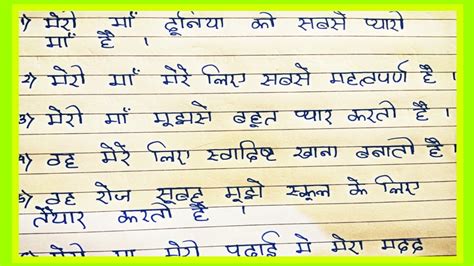 1) मेरी माँ दूनिया की सबसे प्यारी
माँ है ।
2) मेरी माँ मेरे लिए सबसे महत्वपर्ण है ।
3) मेरी माँ मूझसे बहूत प्यार करती है ।
4) वह मेरे लिए स्वादिष्ट खाना बनाती है ।
5) वह रोज सूबह मूझे स्कूल के लिए
तैयार करती है ।
मेरी मा मेरी पढाई मे मेरा मदद